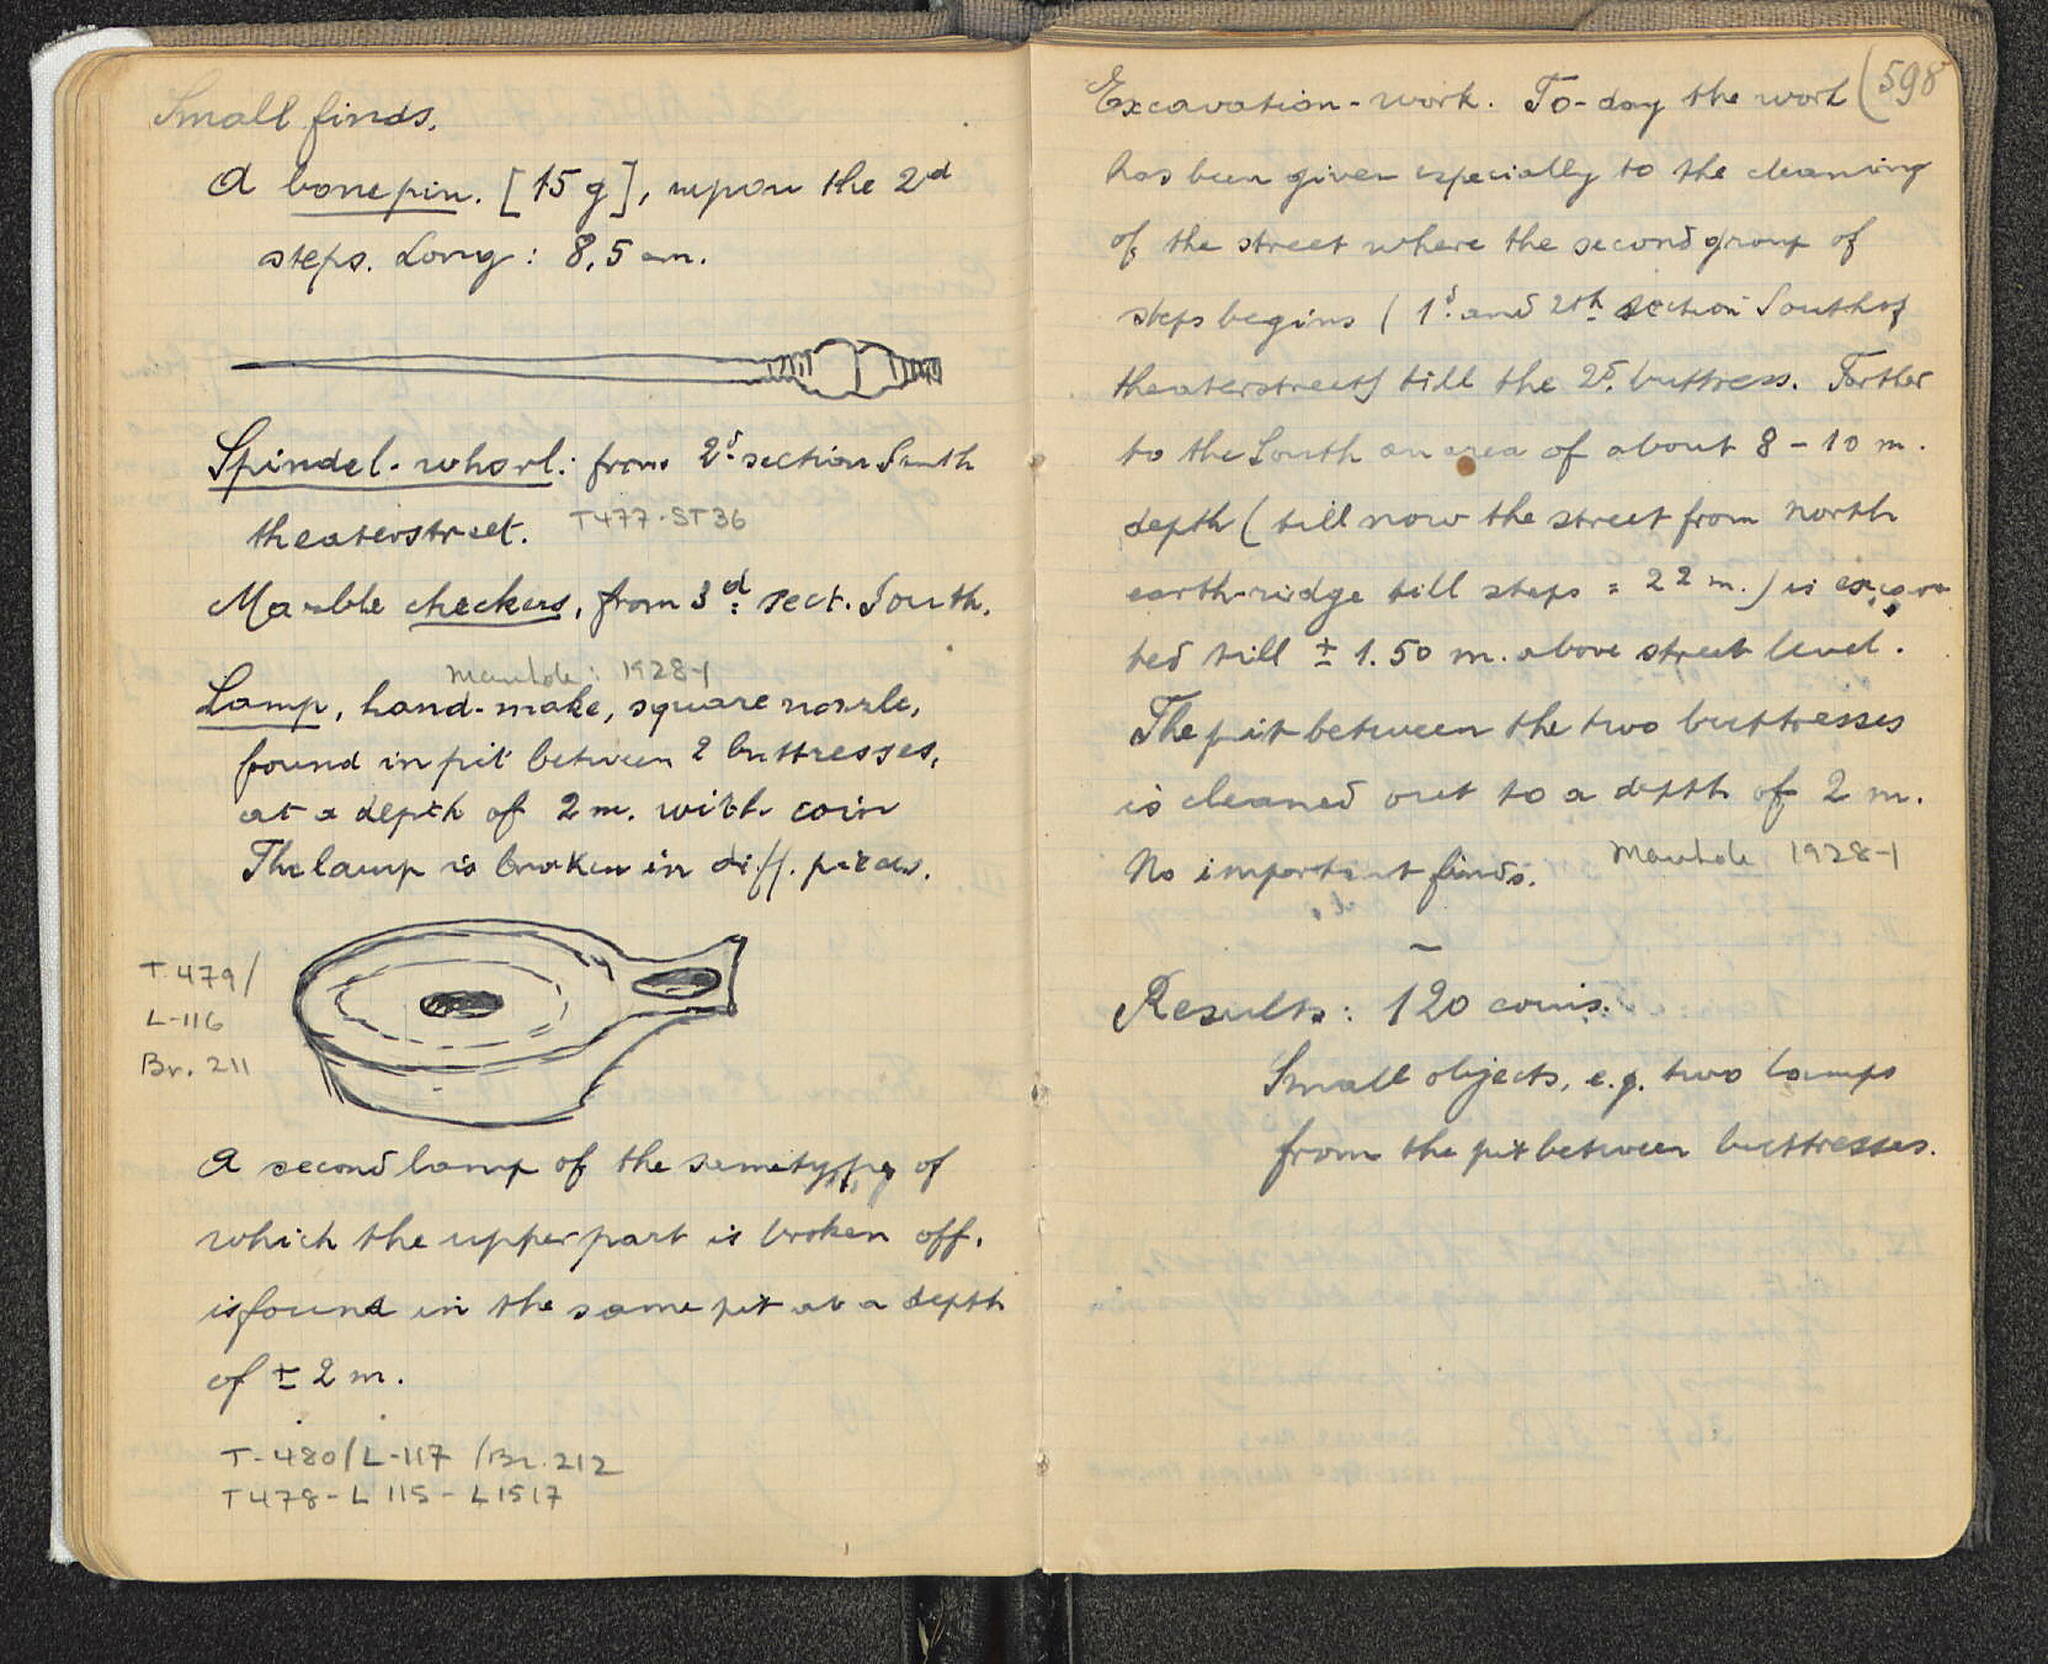 Small finds.
A bonepin. [15 g], upon the 2d
steps. Long: 8,5 cm.
Spindel-whorl: from 2d. section South
theaterstreet. T477-ST36
Marble checkers, from 3d sect. South.
1928-1
Lamp, hand-make, square nozzle,
found in pit between 2 buttresses,
at a depth of 2 m. with coin
The lamp is broken in diff. pieces.
T 479/
L-116
Br. 211
A second lamp of the sametype of
which the upper part is broken off.
is found in the same pit at a depth
of ± 2 m.
T-480/L-117 /Br. 212
T478-L 115-L1517
598
Excavation-work. To-day the work
has been given especially to the cleaning
of the street where the second group of
steps begins (1s. and 2th section South of
theaterstreet) till the 2d. buttress. Farther
to the South an area of about 8-10 m.
depth (till now the street from north
earth-ridge till steps = 22 m.) is excava
ted till ± 1.50 m. above street level.
The pit between the two buttresses
is cleaned out to a depth of 2 m.
No important finds. 1928-1
Results: 120 coins.
Small objects, e.g. two lamps
from the pit between buttresses.